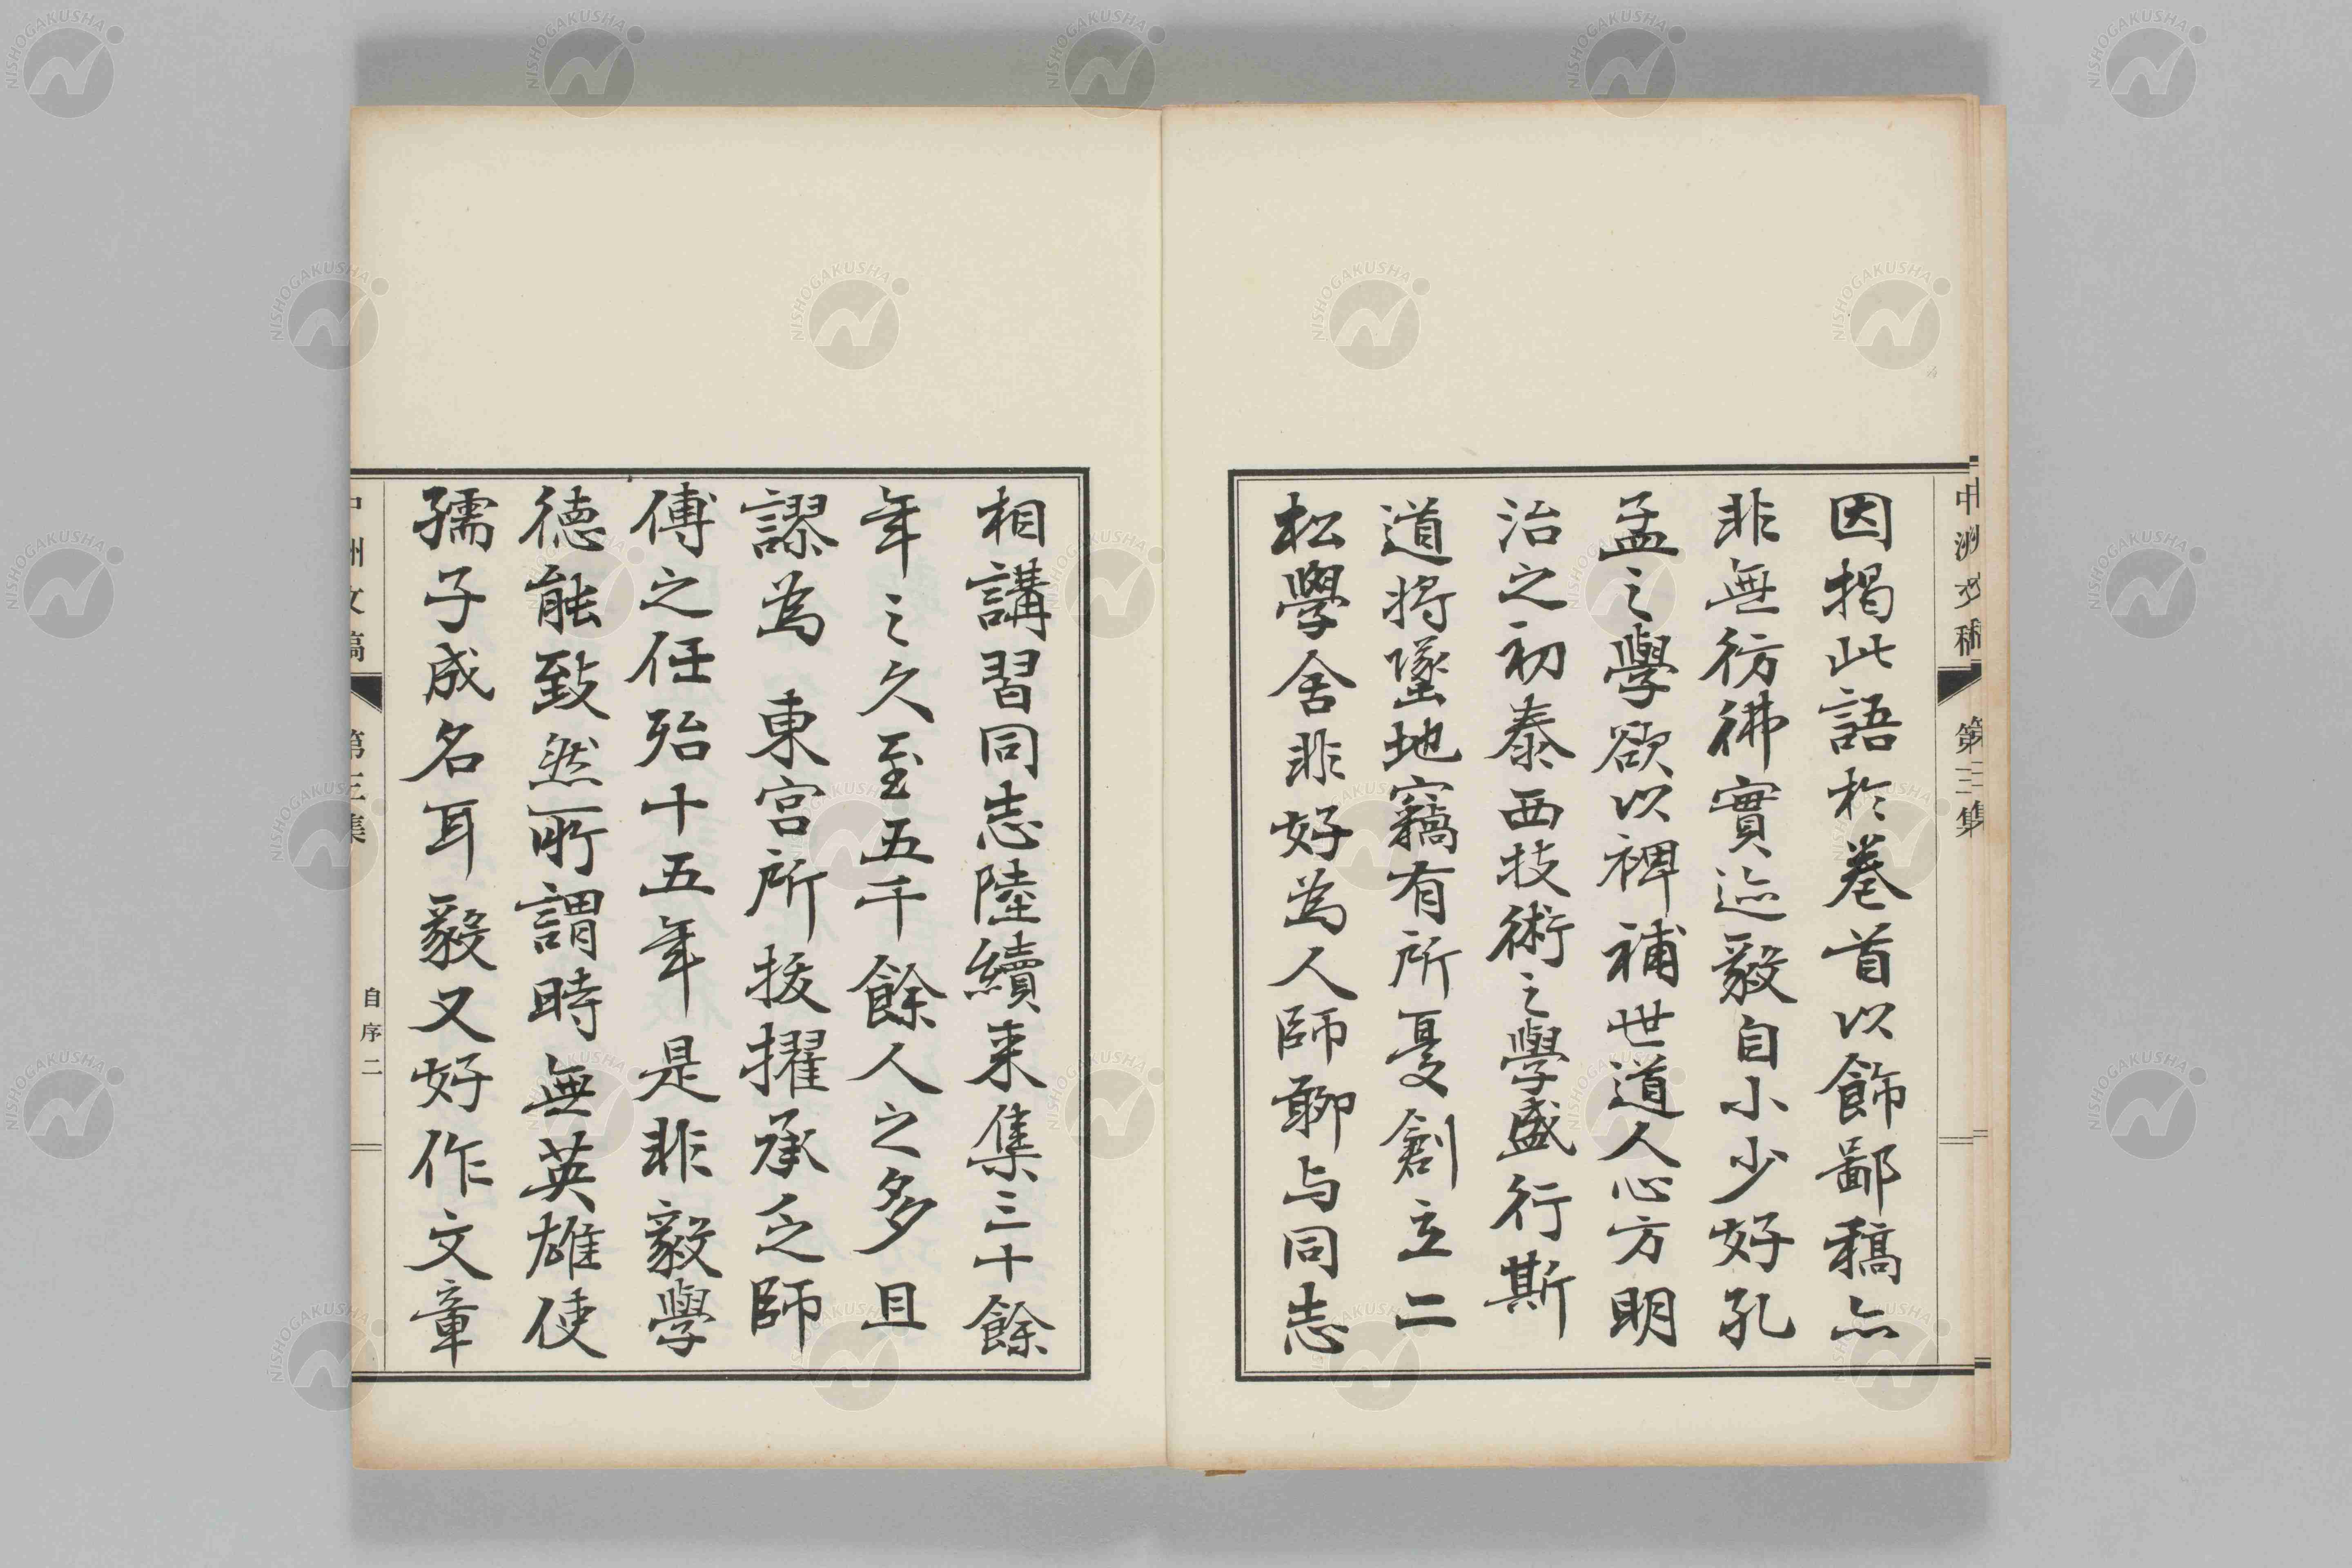 中洲文稿 第三集
因揭此語於卷首以飾鄙稿亦
非無彷彿實迹毅自小少好孔
孟之學欲以裨補世道人心方明
治之初泰西技術之學盛行斯
道將墜地竊有所憂創立二
松學舍非好為人師聊与同志
相講習同志陸續来集三十餘
年之久至五千餘人之多且
謬為 東宮所拔擢承乏師
傅之任殆十五年是非毅學
德能致然所謂時無英雄使
孺子成名耳毅又好作文章
中洲文稿 第三集 自序二
NISHOGAKUSHA